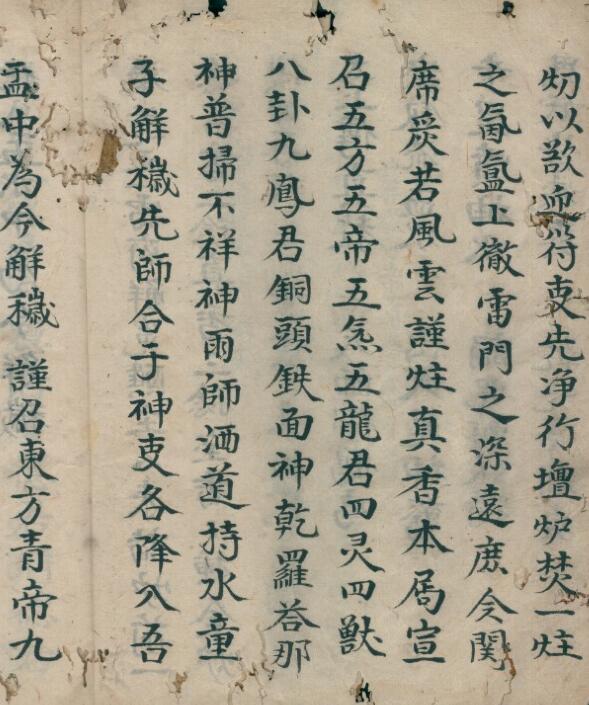 切以歃血苻吏先净行壇炉焚一炷
之氤氳上徹雷門之深遠庶令関
席炭若風雲謹炷真香本局宣
召五方五帝五炁五龍君四灵四獸
八卦九鳳君銅頭鉄面神乾羅荅那
神普掃不祥神雨師洒道持水童
子解穢先師合于神吏各降入吾
盂中為今解穢謹召東方青帝九